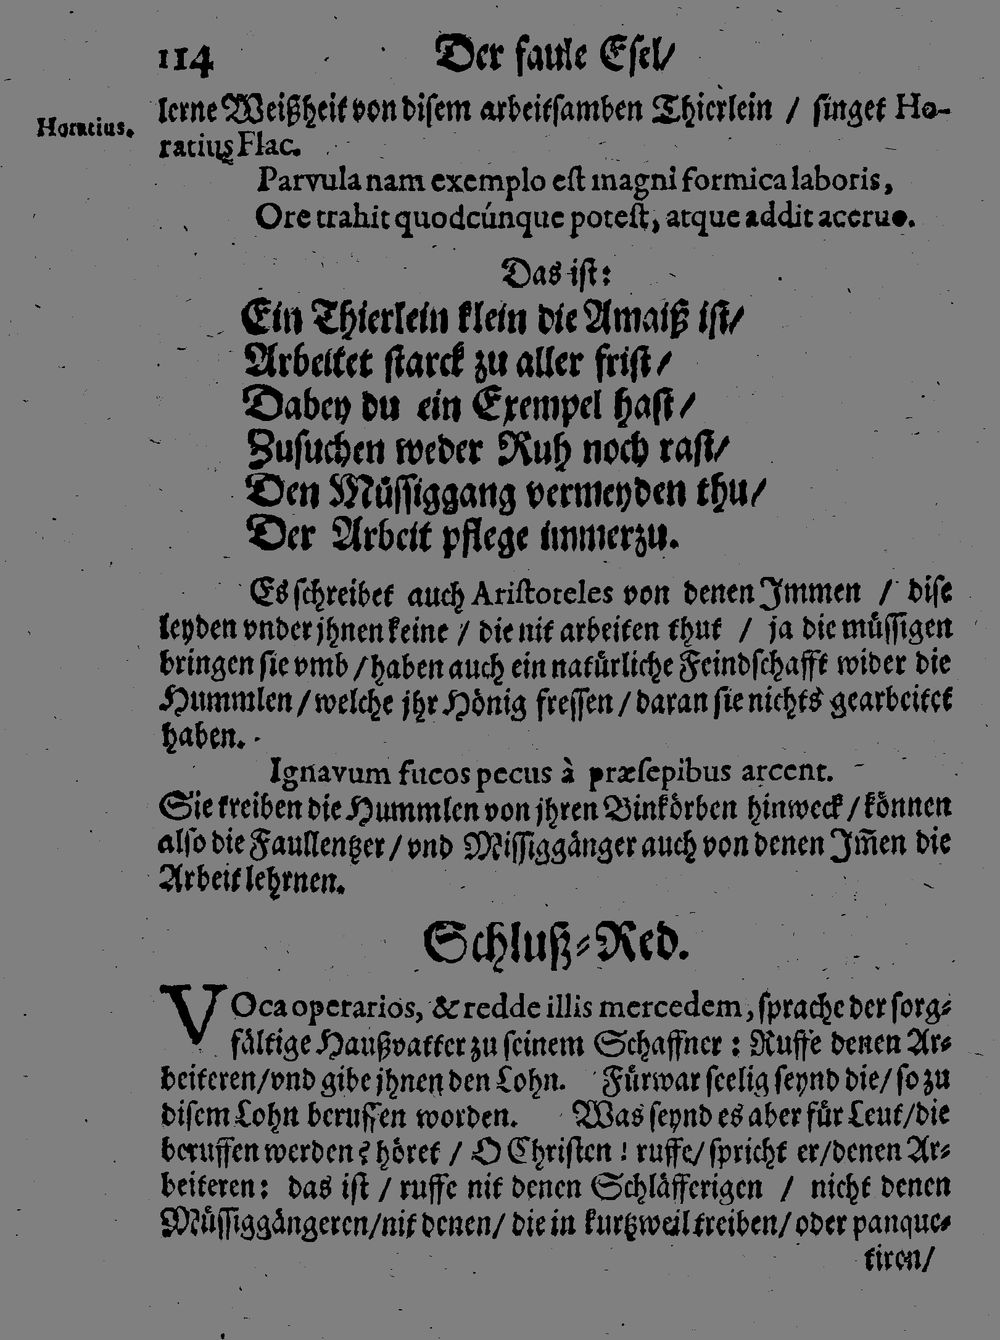 114 Der faule Esel/
lerne Weißheit von disem arbeitsamben Thierlein / singet Ho-
Horatius.
ratius Flac.
Parvula nam exemplo est magni formica laboris,
Ore trahit quodcúnque potest, atque addit aceruo.
Das ist:
Ein Thierlein klein die Amaiß ist/
Arbeitet starck zu aller frist/
Dabey du ein Exempel hast/
Zusuchen weder Ruh noch rast/
Den Müssiggang vermeyden thu/
Der Arbeit pflege immerzu.
Es schreibet auch Aristoteles von denen Jmmen / dise
leyden vnder jhnen keine / die nit arbeiten thut / ja die müssigen
bringen sie vmb / haben auch ein natürliche Feindschafft wider die
Hummlen / welche jhr Hönig fressen / daran sie nichts gearbeitet
haben.
Ignavum fucos pecus à præsepibus arcent.
Sie treiben die Hummlen von jhren Binkörben hinweck / können
also die Faullentzer / vnd Missiggänger auch von denen Jm̃en die
Arbeit lehrnen.
Schluß-Red.
VOca operarios, & redde illis mercedem, sprache der sorg-
fältige Haußvatter zu seinem Schaffner : Ruffe denen Ar-
beiteren/vnd gibe jhnen den Lohn. Fürwar seelig seynd die/ so zu
disem Lohn beruffen worden. Was seynd es aber für Leut/die
beruffen werden? höret / O Christen ! ruffe/ spricht er/denen Ar-
beiteren: das ist / ruffe nit denen Schläfferigen / nicht denen
Müssiggängeren/nit denen/ die in kurtzweil treiben/ oder panque-
tiren/